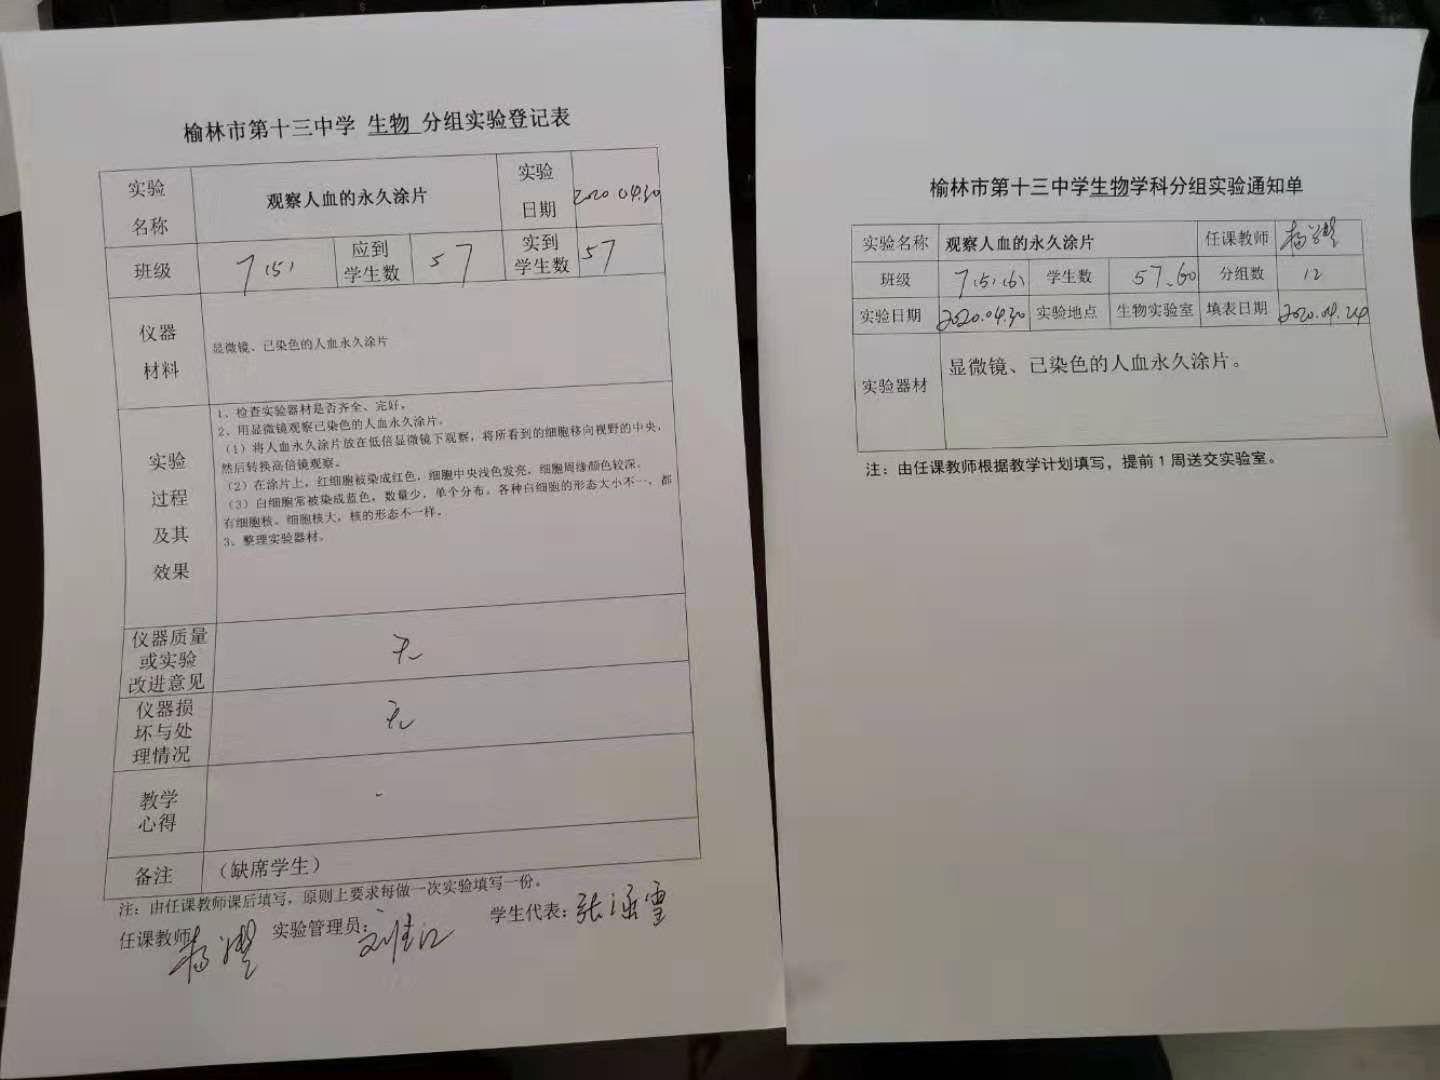 榆林市第十三中学 生物 分组实验登记表
实验名称 观察人血的永久涂片 实验日期 2020.04.30
班级 7(5) 应到学生数 57 实到学生数 57
仪器材料 显微镜、已染色的人血永久涂片
实验过程及其效果
1、检查实验器材是否齐全、完好。
2、用显微镜观察已染色的人血永久涂片。
（1）将人血永久涂片放在低倍显微镜下观察，将所看到的细胞移向视野的中央，
然后转换高倍镜观察。
（2）在涂片上，红细胞被染成红色，细胞中央浅色发亮，细胞周缘颜色较深。
（3）白细胞常被染成蓝色，数量少，单个分布。各种白细胞的形态大小不一，都
有细胞核。细胞核大，核的形态不一样。
3、整理实验器材。
仪器质量或实验改进意见 无
仪器损坏与处理情况 无
教学心得
备注 （缺席学生）
注：由任课教师课后填写，原则上要求每做一次实验填写一份。
任课教师: 实验管理员: 学生代表:
榆林市第十三中学生物学科分组实验通知单
实验名称 观察人血的永久涂片 任课教师
班级 7(5)(6) 学生数 57、60 分组数 12
实验日期 2020.04.30 实验地点 生物实验室 填表日期 2020.04.24
实验器材 显微镜、已染色的人血永久涂片。
注：由任课教师根据教学计划填写，提前1周送交实验室。